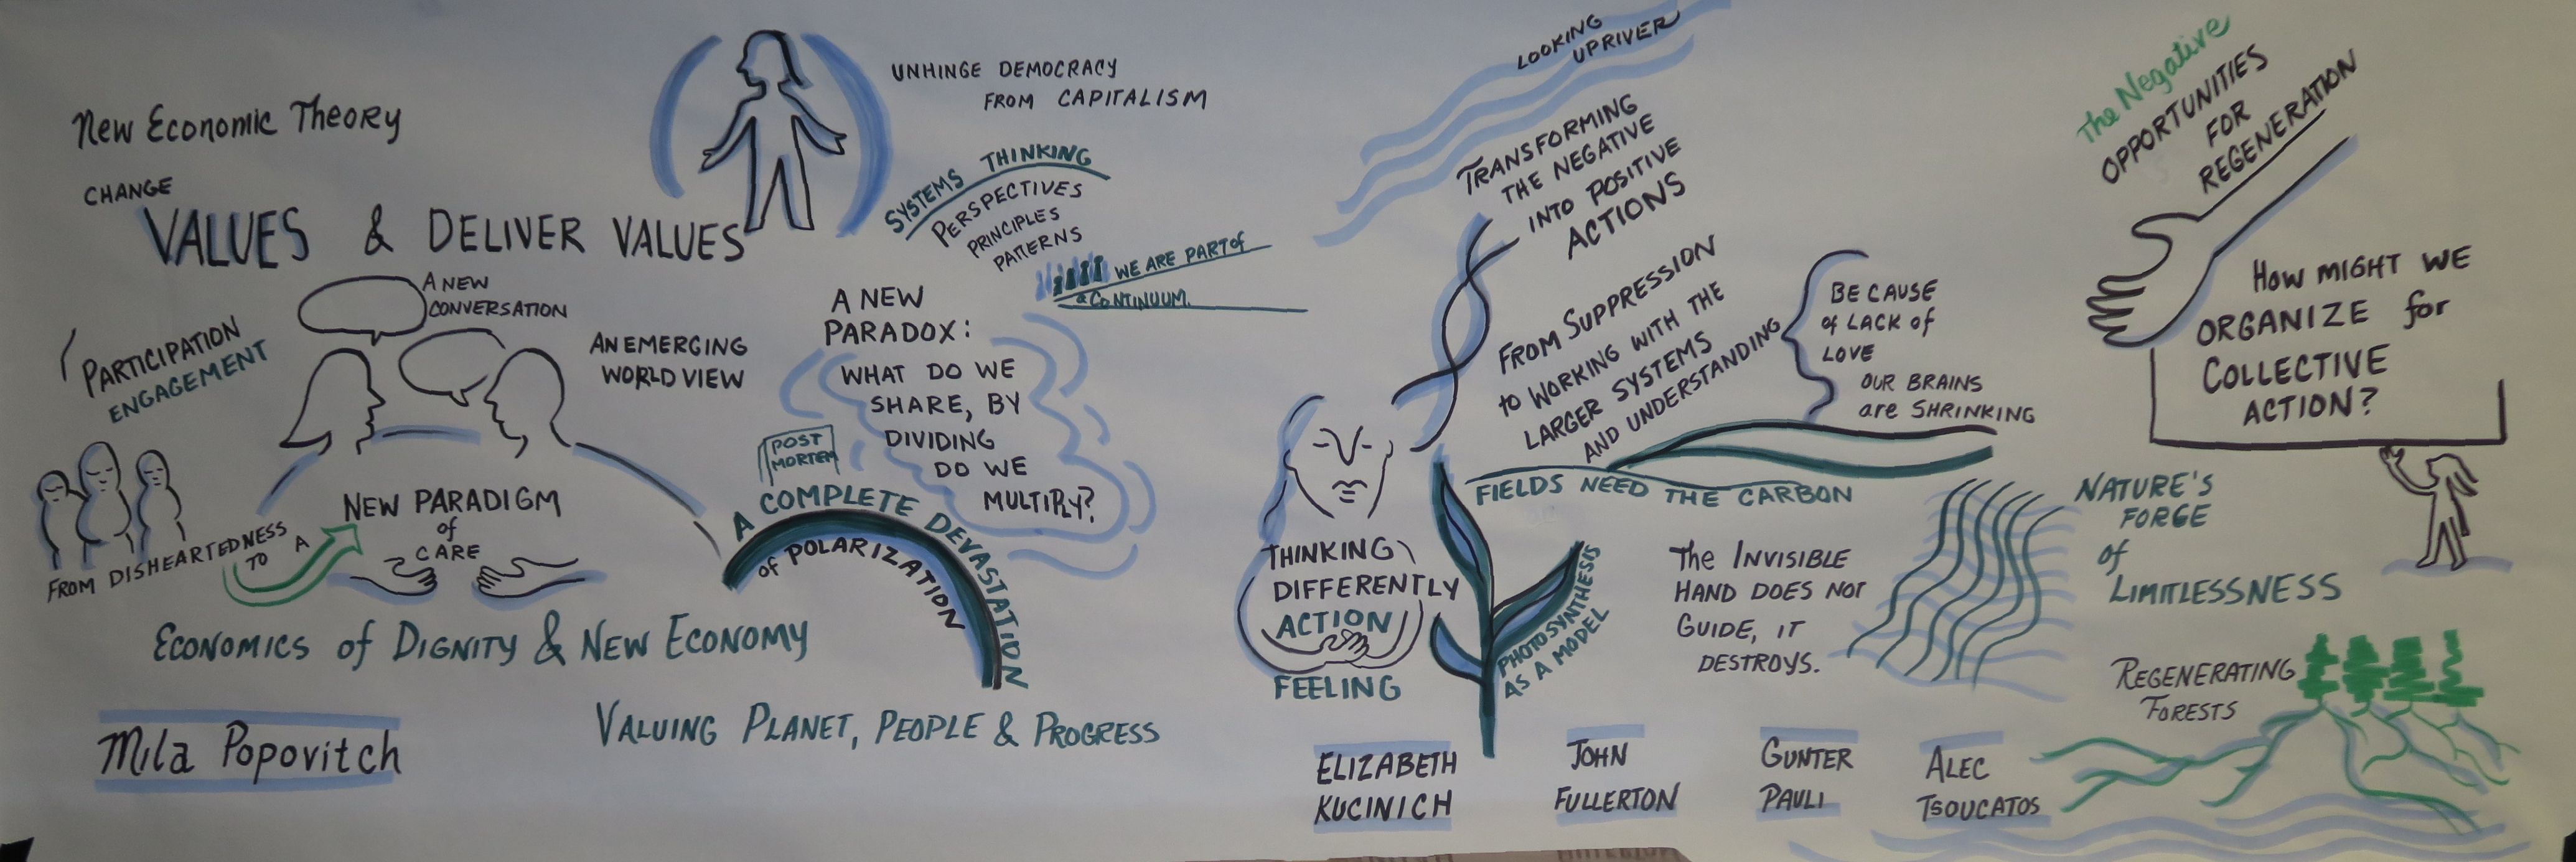 New Economic Theory
CHANGE
VALUES & DELIVER VALUES
UNHINGE DEMOCRACY
FROM CAPITALISM
SYSTEMS THINKING
PERSPECTIVES
PRINCIPLES
PATTERNS
WE ARE PART of
a CONTINUUM.
A NEW
CONVERSATION
PARTICIPATION
ENGAGEMENT
AN EMERGING
WORLD VIEW
A NEW
PARADOX:
WHAT DO WE
SHARE, BY
DIVIDING
DO WE
MULTIPLY?
POST
MORTEM
A COMPLETE DEVASTATION
of POLARIZATION
FROM DISHEARTEDNESS
TO A
NEW PARADIGM
of
CARE
ECONOMICS of DIGNITY & NEW ECONOMY
VALUING PLANET, PEOPLE & PROGRESS
Mila Popovitch
LOOKING
UPRIVER
TRANSFORMING
THE NEGATIVE
INTO POSITIVE
ACTIONS
FROM SUPPRESSION
to WORKING WITH THE
LARGER SYSTEMS
AND UNDERSTANDING
BECAUSE
of LACK of
LOVE
OUR BRAINS
are SHRINKING
FIELDS NEED THE CARBON
THINKING
DIFFERENTLY
ACTION
FEELING
PHOTOSYNTHESIS
AS A MODEL
The INVISIBLE
HAND DOES NOT
GUIDE, IT
DESTROYS.
ELIZABETH
KUCINICH
JOHN
FULLERTON
GUNTER
PAULI
ALEC
TSOUCATOS
The Negative
OPPORTUNITIES
FOR
REGENERATION
HOW MIGHT WE
ORGANIZE for
COLLECTIVE
ACTION?
NATURE'S
FORGE
of
LIMITLESSNESS
REGENERATING
FORESTS